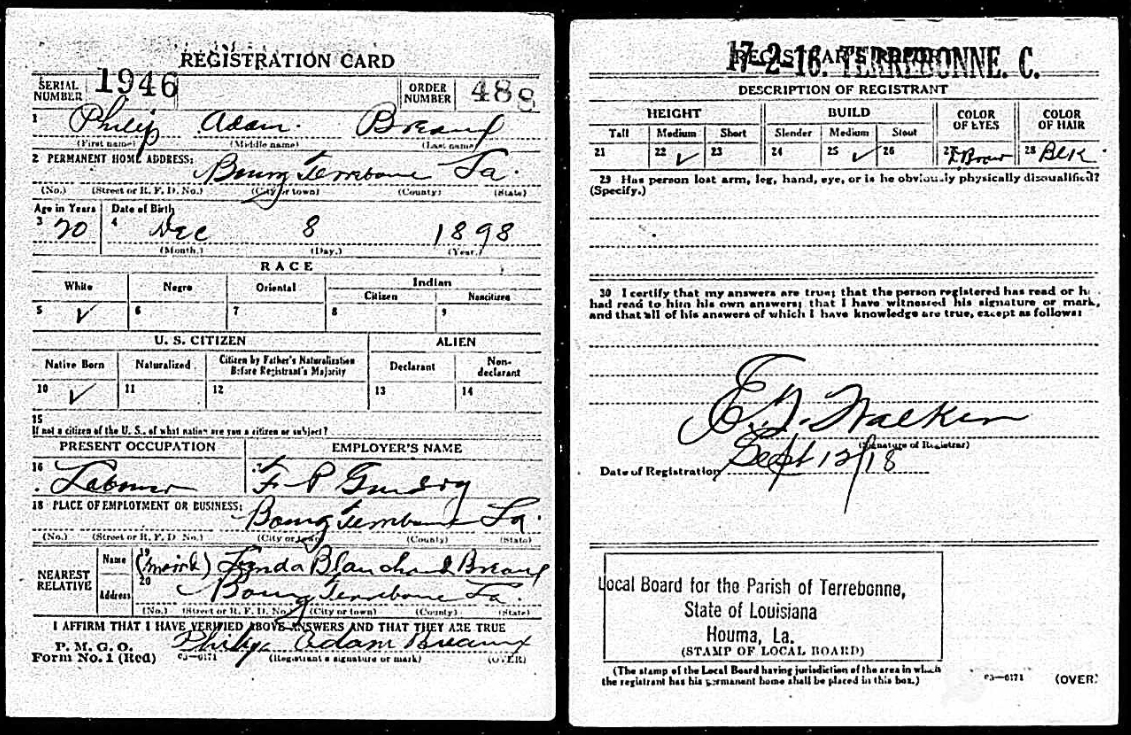 REGISTRATION CARD
SERIAL NUMBER 1946 ORDER NUMBER 488
1 Philip Adam Breaux
(First name) (Middle name) (Last name)
2 PERMANENT HOME ADDRESS:
Bourg Terrebonne La.
(No.) (Street or R. F. D. No.) (City or town) (County) (State)
Age in Years Date of Birth
3 20 4 Dec 8 1898
(Month.) (Day.) (Year.)
RACE
White Negro Oriental Indian
Citizen Noncitizen
5 ✓ 6 7 8 9
U. S. CITIZEN ALIEN
Native Born Naturalized Citizen by Father's Naturalization Before Registrant's Majority Declarant Non-declarant
10 ✓ 11 12 13 14
15
If not a citizen of the U. S., of what nation are you a citizen or subject?
PRESENT OCCUPATION EMPLOYER'S NAME
16 Laborer F P Guidry
18 PLACE OF EMPLOYMENT OR BUSINESS:
Bourg Terrebonne La.
(No.) (Street or R. F. D. No.) (City or town) (County) (State)
NEAREST RELATIVE
Name 19 Blanchard Breaux
Address 20 Bourg Terrebonne La.
(No.) (Street or R. F. D. No.) (City or town) (County) (State)
I AFFIRM THAT I HAVE VERIFIED ABOVE ANSWERS AND THAT THEY ARE TRUE
P. M. G. O.
Form No. 1 (Red) 03—6171 Philip Adam Breaux
(Registrant's signature or mark) (OVER)
REGISTRAR'S REPORT
17-2-16. TERREBONNE. C.
DESCRIPTION OF REGISTRANT
HEIGHT BUILD COLOR OF EYES COLOR OF HAIR
Tall Medium Short Slender Medium Stout
21 22 ✓ 23 24 25 ✓ 26 27 28 Blk.
29 Has person lost arm, leg, hand, eye, or is he obviously physically disqualified?
(Specify.)
30 I certify that my answers are true; that the person registered has read or h
had read to him his own answers; that I have witnessed his signature or mark,
and that all of his answers of which I have knowledge are true, except as follows:
Walker
(Signature of Registrar)
Date of Registration Sept 12/18
Local Board for the Parish of Terrebonne,
State of Louisiana
Houma, La.
(STAMP OF LOCAL BOARD)
(The stamp of the Local Board having jurisdiction of the area in which
the registrant has his permanent home shall be placed in this box.)
03—6171 (OVER)